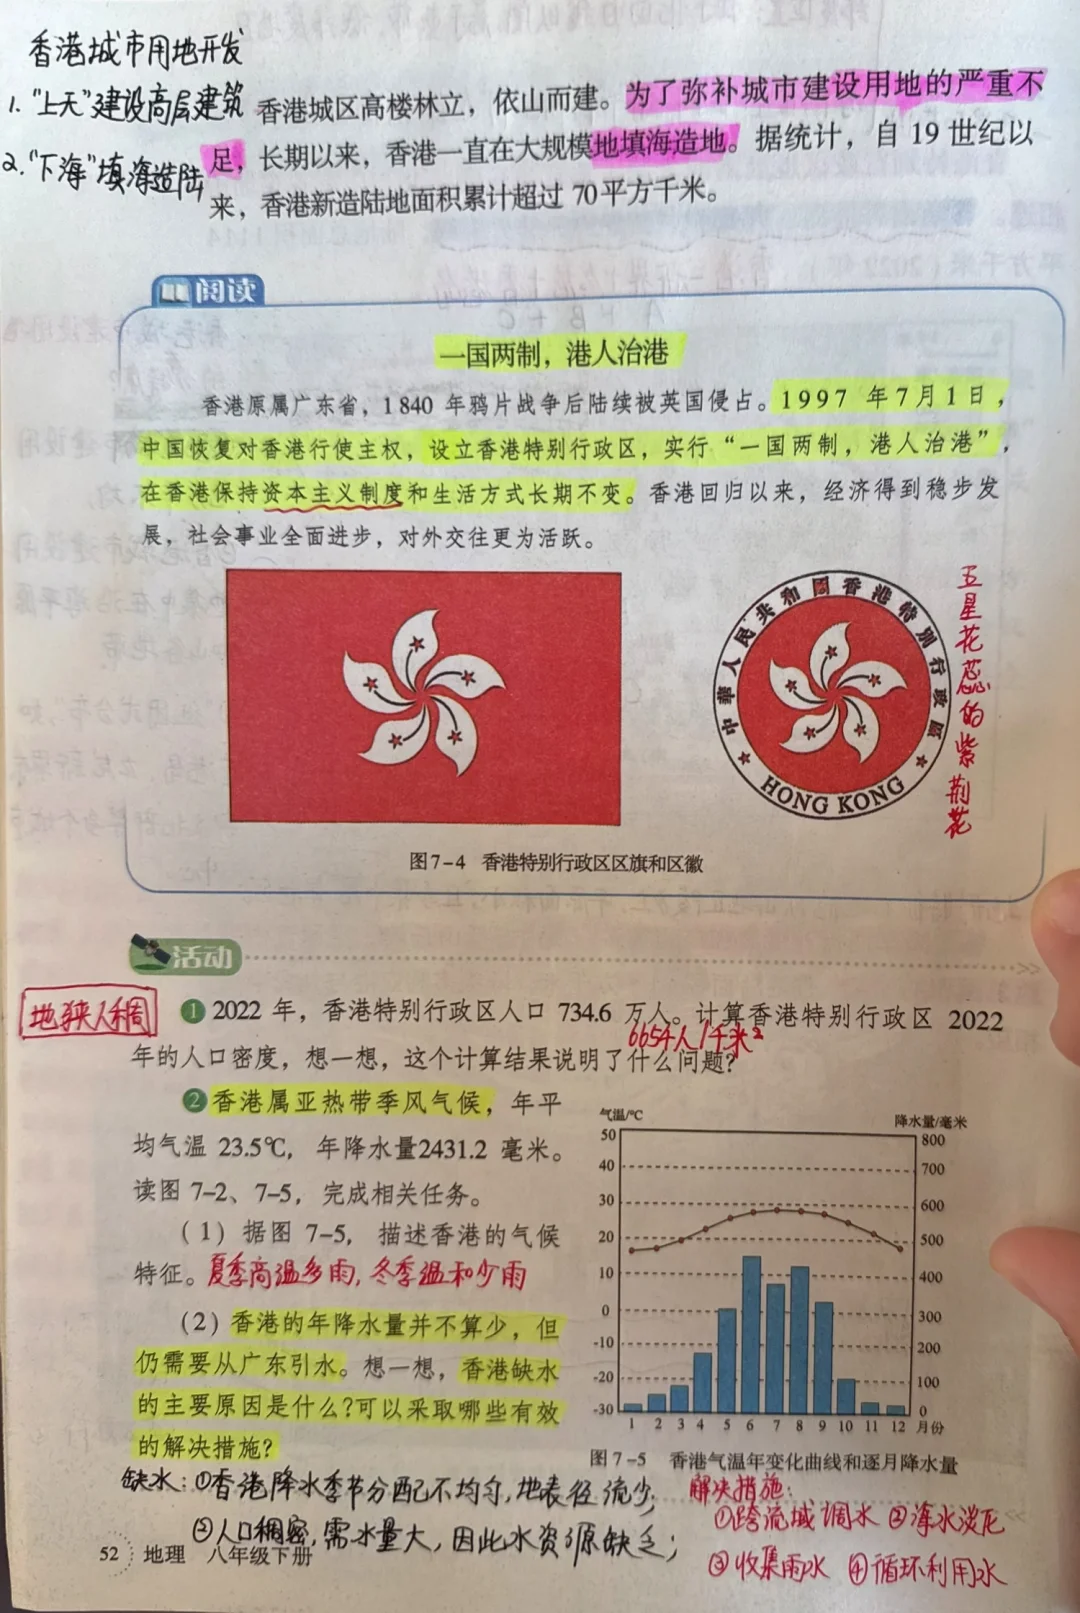 香港城市用地开发
1."上天"建设高层建筑
2."下海"填海造陆
香港城区高楼林立，依山而建。为了弥补城市建设用地的严重不
足，长期以来，香港一直在大规模地填海造地。据统计，自 19 世纪以
来，香港新造陆地面积累计超过 70 平方千米。
阅读
一国两制，港人治港
香港原属广东省，1840 年鸦片战争后陆续被英国侵占。1997 年7月1日，
中国恢复对香港行使主权，设立香港特别行政区，实行“一国两制，港人治港”，
在香港保持资本主义制度和生活方式长期不变。香港回归以来，经济得到稳步发
展，社会事业全面进步，对外交往更为活跃。
中華人民共和國香港特别行政區
HONG KONG
五星花蕊的紫荆花
图7-4 香港特别行政区区旗和区徽
活动
地狭人稠
❶ 2022 年，香港特别行政区人口 734.6 万人。计算香港特别行政区 2022
6654人/千米²
年的人口密度，想一想，这个计算结果说明了什么问题？
❷ 香港属亚热带季风气候，年平
均气温 23.5℃，年降水量2431.2 毫米。
读图 7-2、7-5，完成相关任务。
（1）据图 7-5，描述香港的气候
特征。夏季高温多雨，冬季温和少雨
（2）香港的年降水量并不算少，但
仍需要从广东引水。想一想，香港缺水
的主要原因是什么？可以采取哪些有效
的解决措施？
气温/℃
降水量/毫米
50
40
30
20
10
0
-10
-20
-30
800
700
600
500
400
300
200
100
0
1 2 3 4 5 6 7 8 9 10 11 12 月份
图 7-5 香港气温年变化曲线和逐月降水量
缺水：①香港降水季节分配不均匀，地表径流少；
②人口稠密，需水量大，因此水资源缺乏；
解决措施：
①跨流域调水 ②海水淡化
③收集雨水 ④循环利用水
52 地理 八年级下册